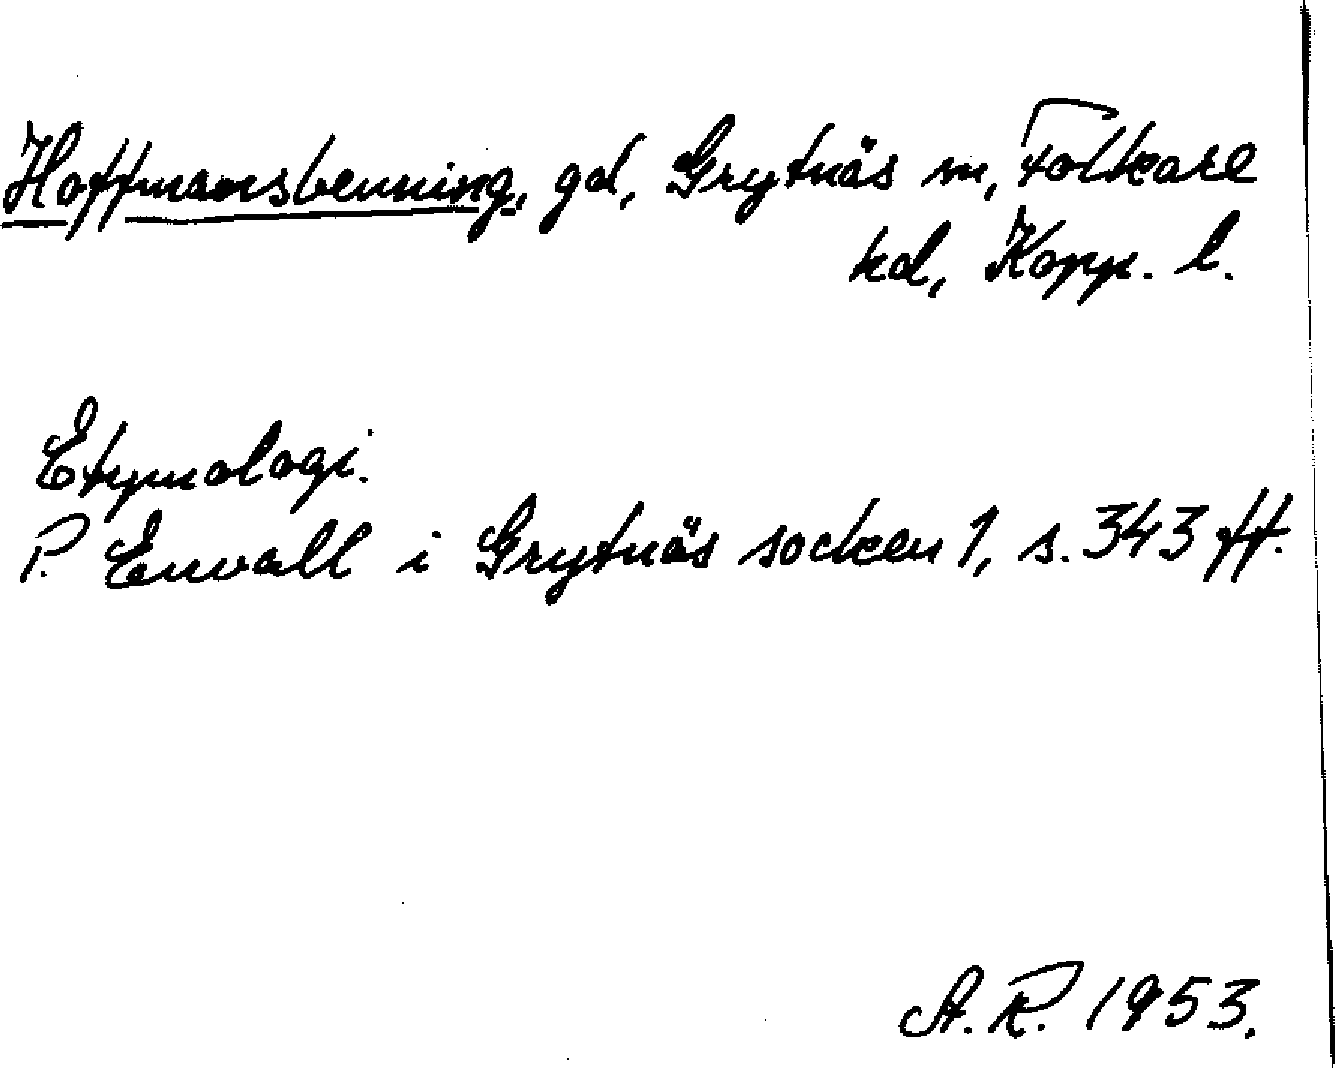 Hoffmansbenning, gd, Grytnäs sn, Folkare
hd, Kopp. l.
Etymologi.
P. Envall i Grytnäs socken 1, s. 343 ff.
A. R. 1953.